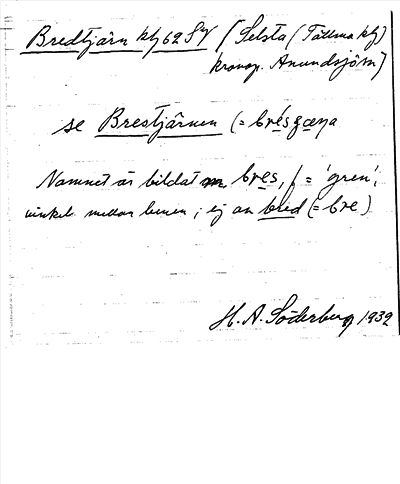 Bredtjärn kbl 62 SV [Selsta (Tällmo kbl)
kronogr. Anundsjöm]
se Brestjärnen (= brésʒæṇa
Namnet är bildat m. bres, f = 'gren',
vinkel mellan benen; ej av bred (= bre)
H. A. Söderberg 1932